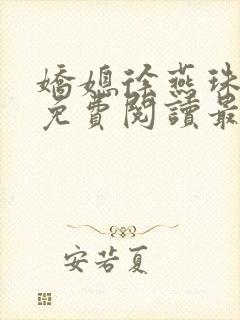 嬌媳徐燕珠
免費閱讀最
安若夏